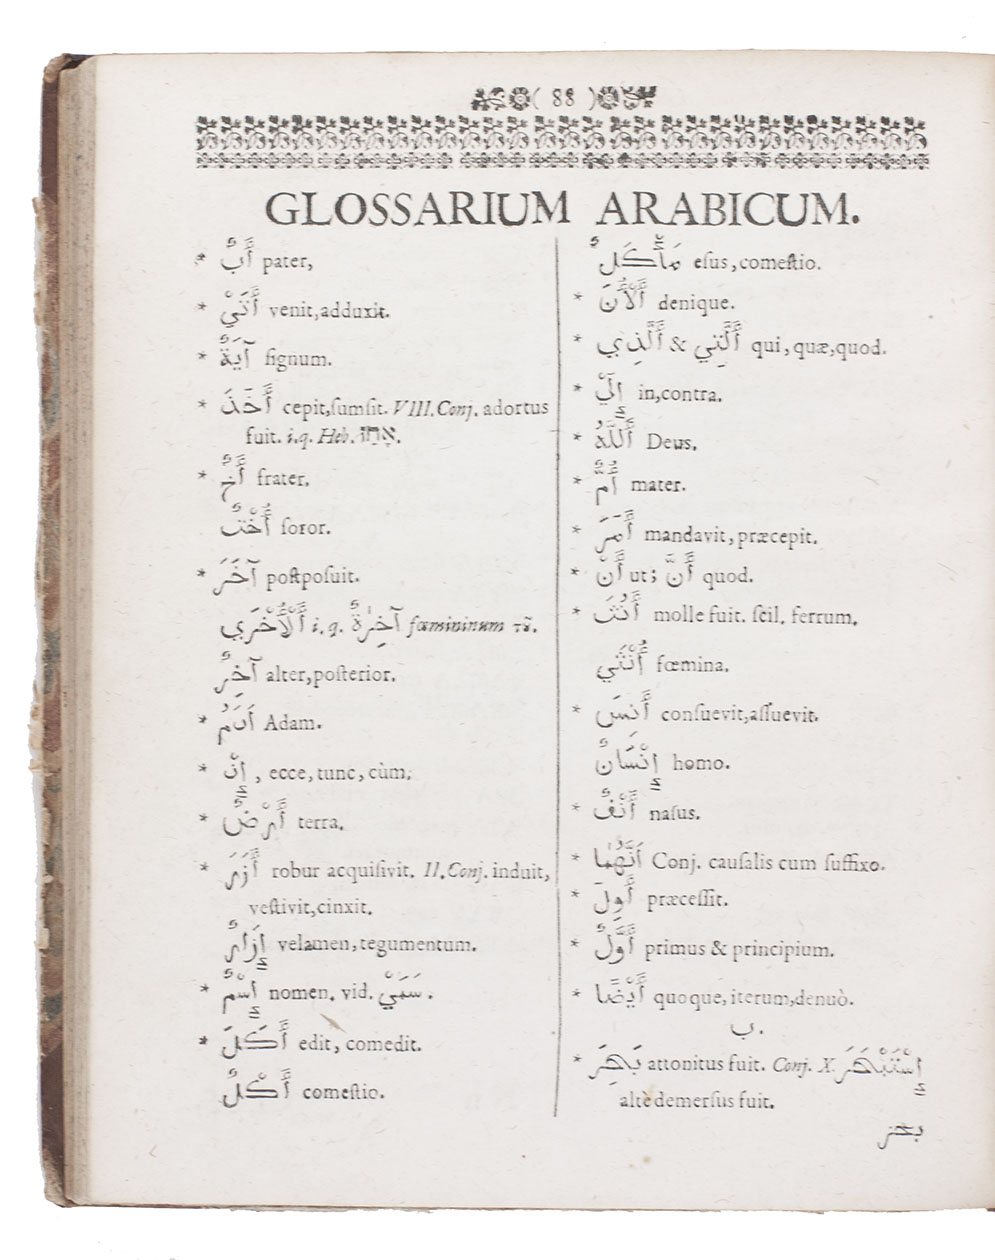 ( 88 )
GLOSSARIUM ARABICUM.
* أَبٌ pater,
* أَتَيْ venit,adduxit.
* آيَةٌ ſignum.
* أَخَذَ cepit,ſumſit. VIII. Conj. adortus
fuit. i.q. Heb. אָחַז.
* أَخٌ frater.
أُخْتٌ ſoror.
* آخَرَ poſtpoſuit.
أَلْأُخْرَي i.q. آخِرَةٌ fœmininum τȣ̃.
آخِرٌ alter,poſterior.
* اَدَمُ Adam.
* إِنْ , ecce, tunc, cùm.
* أَرْضٌ terra.
* أَزَرَ robur acquiſivit. II. Conj. induit,
veſtivit,cinxit.
إِزَارٌ velamen,tegumentum.
* إِسْمٌ nomen. vid. سَمَيْ.
* أَكَلَ edit, comedit.
أَكْلٌ comeſtio.
مَأْكَلٌ eſus,comeſtio.
* أَلْأَنَ denique.
* أَلَّذِي & أَلَّتِي qui, quæ,quod.
* إِلَيْ in,contra.
* أَللَّهُ Deus.
* أُمٌّ mater.
* أَمَرَ mandavit,præcepit.
* أَنْ ut; أَنَّ quod.
* أَنُثَ molle fuit. ſcil. ferrum.
أُنْثَي fœmina.
* أَنِسَ conſuevit,aſſuevit.
إِنْسَانٌ homo.
* أَنْفٌ naſus.
* اَنَّهُمَا Conj. cauſalis cum ſuffixo.
* أَوِلَ præceſſit.
* أَوَّلٌ primus & principium.
* أَيْضًا quoque, iterum,denuò.
ب.
* بَحَرَ attonitus fuit. Conj. X. إِسْتَبْحَرَ
altè demerſus fuit.
بحر